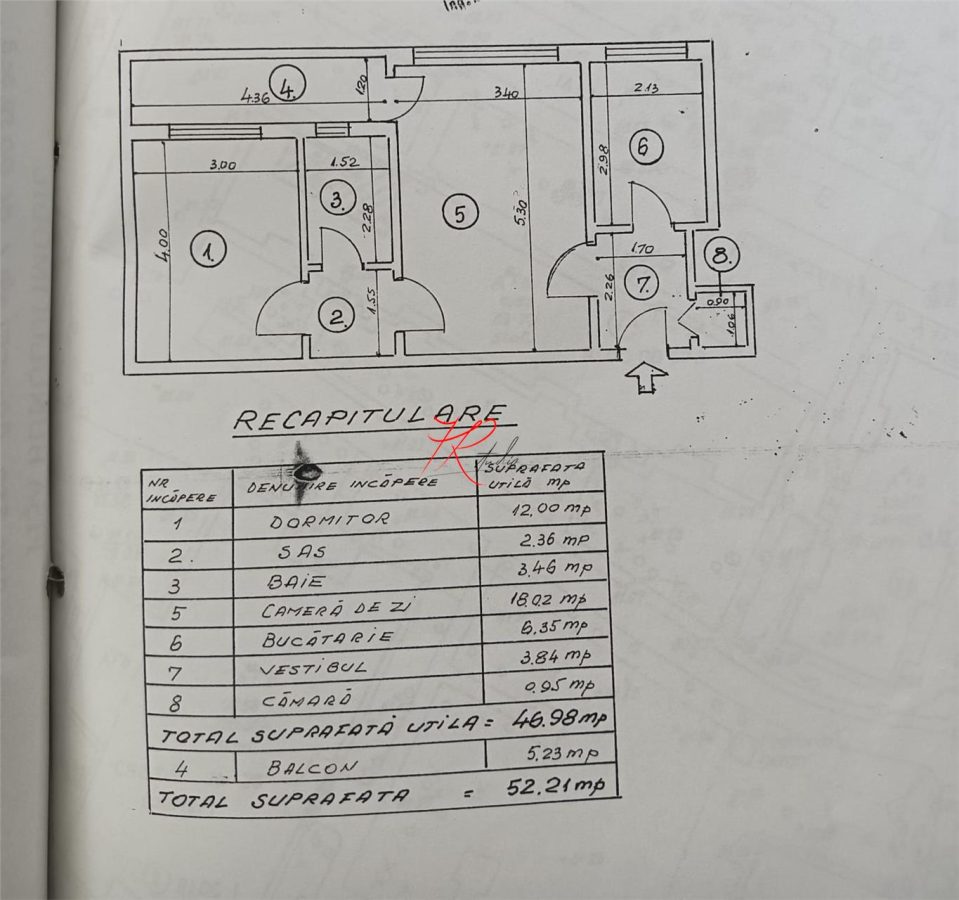 4.
4.36
1.20
3.40
2.13
3.00
1.52
2.98
6
3.
5
5.30
2.28
4.00
1.
1.70
8.
7.
2.26
0.90
1.06
2.
1.55
RECAPITULARE
NR INCĂPERE DENUMIRE INCĂPERE SUPRAFATA UTILĂ mp
1 DORMITOR 12.00 mp
2. SAS 2.36 mp
3 BAIE 3.46 mp
5 CAMERĂ DE ZI 18.02 mp
6 BUCĂTARIE 6.35 mp
7 VESTIBUL 3.84 mp
8 CĂMARĂ 0.95 mp
TOTAL SUPRAFATĂ UTILA = 46.98 mp
4 BALCON 5.23 mp
TOTAL SUPRAFATA = 52.21 mp